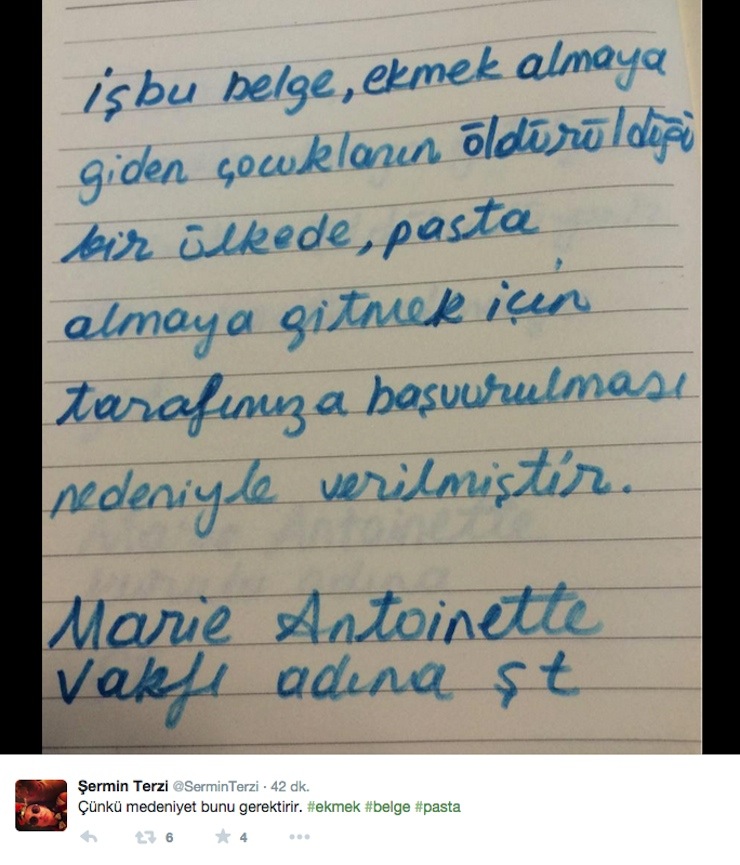 işbu belge, ekmek almaya
giden çocukların öldürüldüğü
bir ülkede, pasta
almaya gitmek için
tarafımıza başvurulması
nedeniyle verilmiştir.
Marie Antoinette
Vakfı adına şt
Şermin Terzi @SerminTerzi · 42 dk.
Çünkü medeniyet bunu gerektirir. #ekmek #belge #pasta
6 4